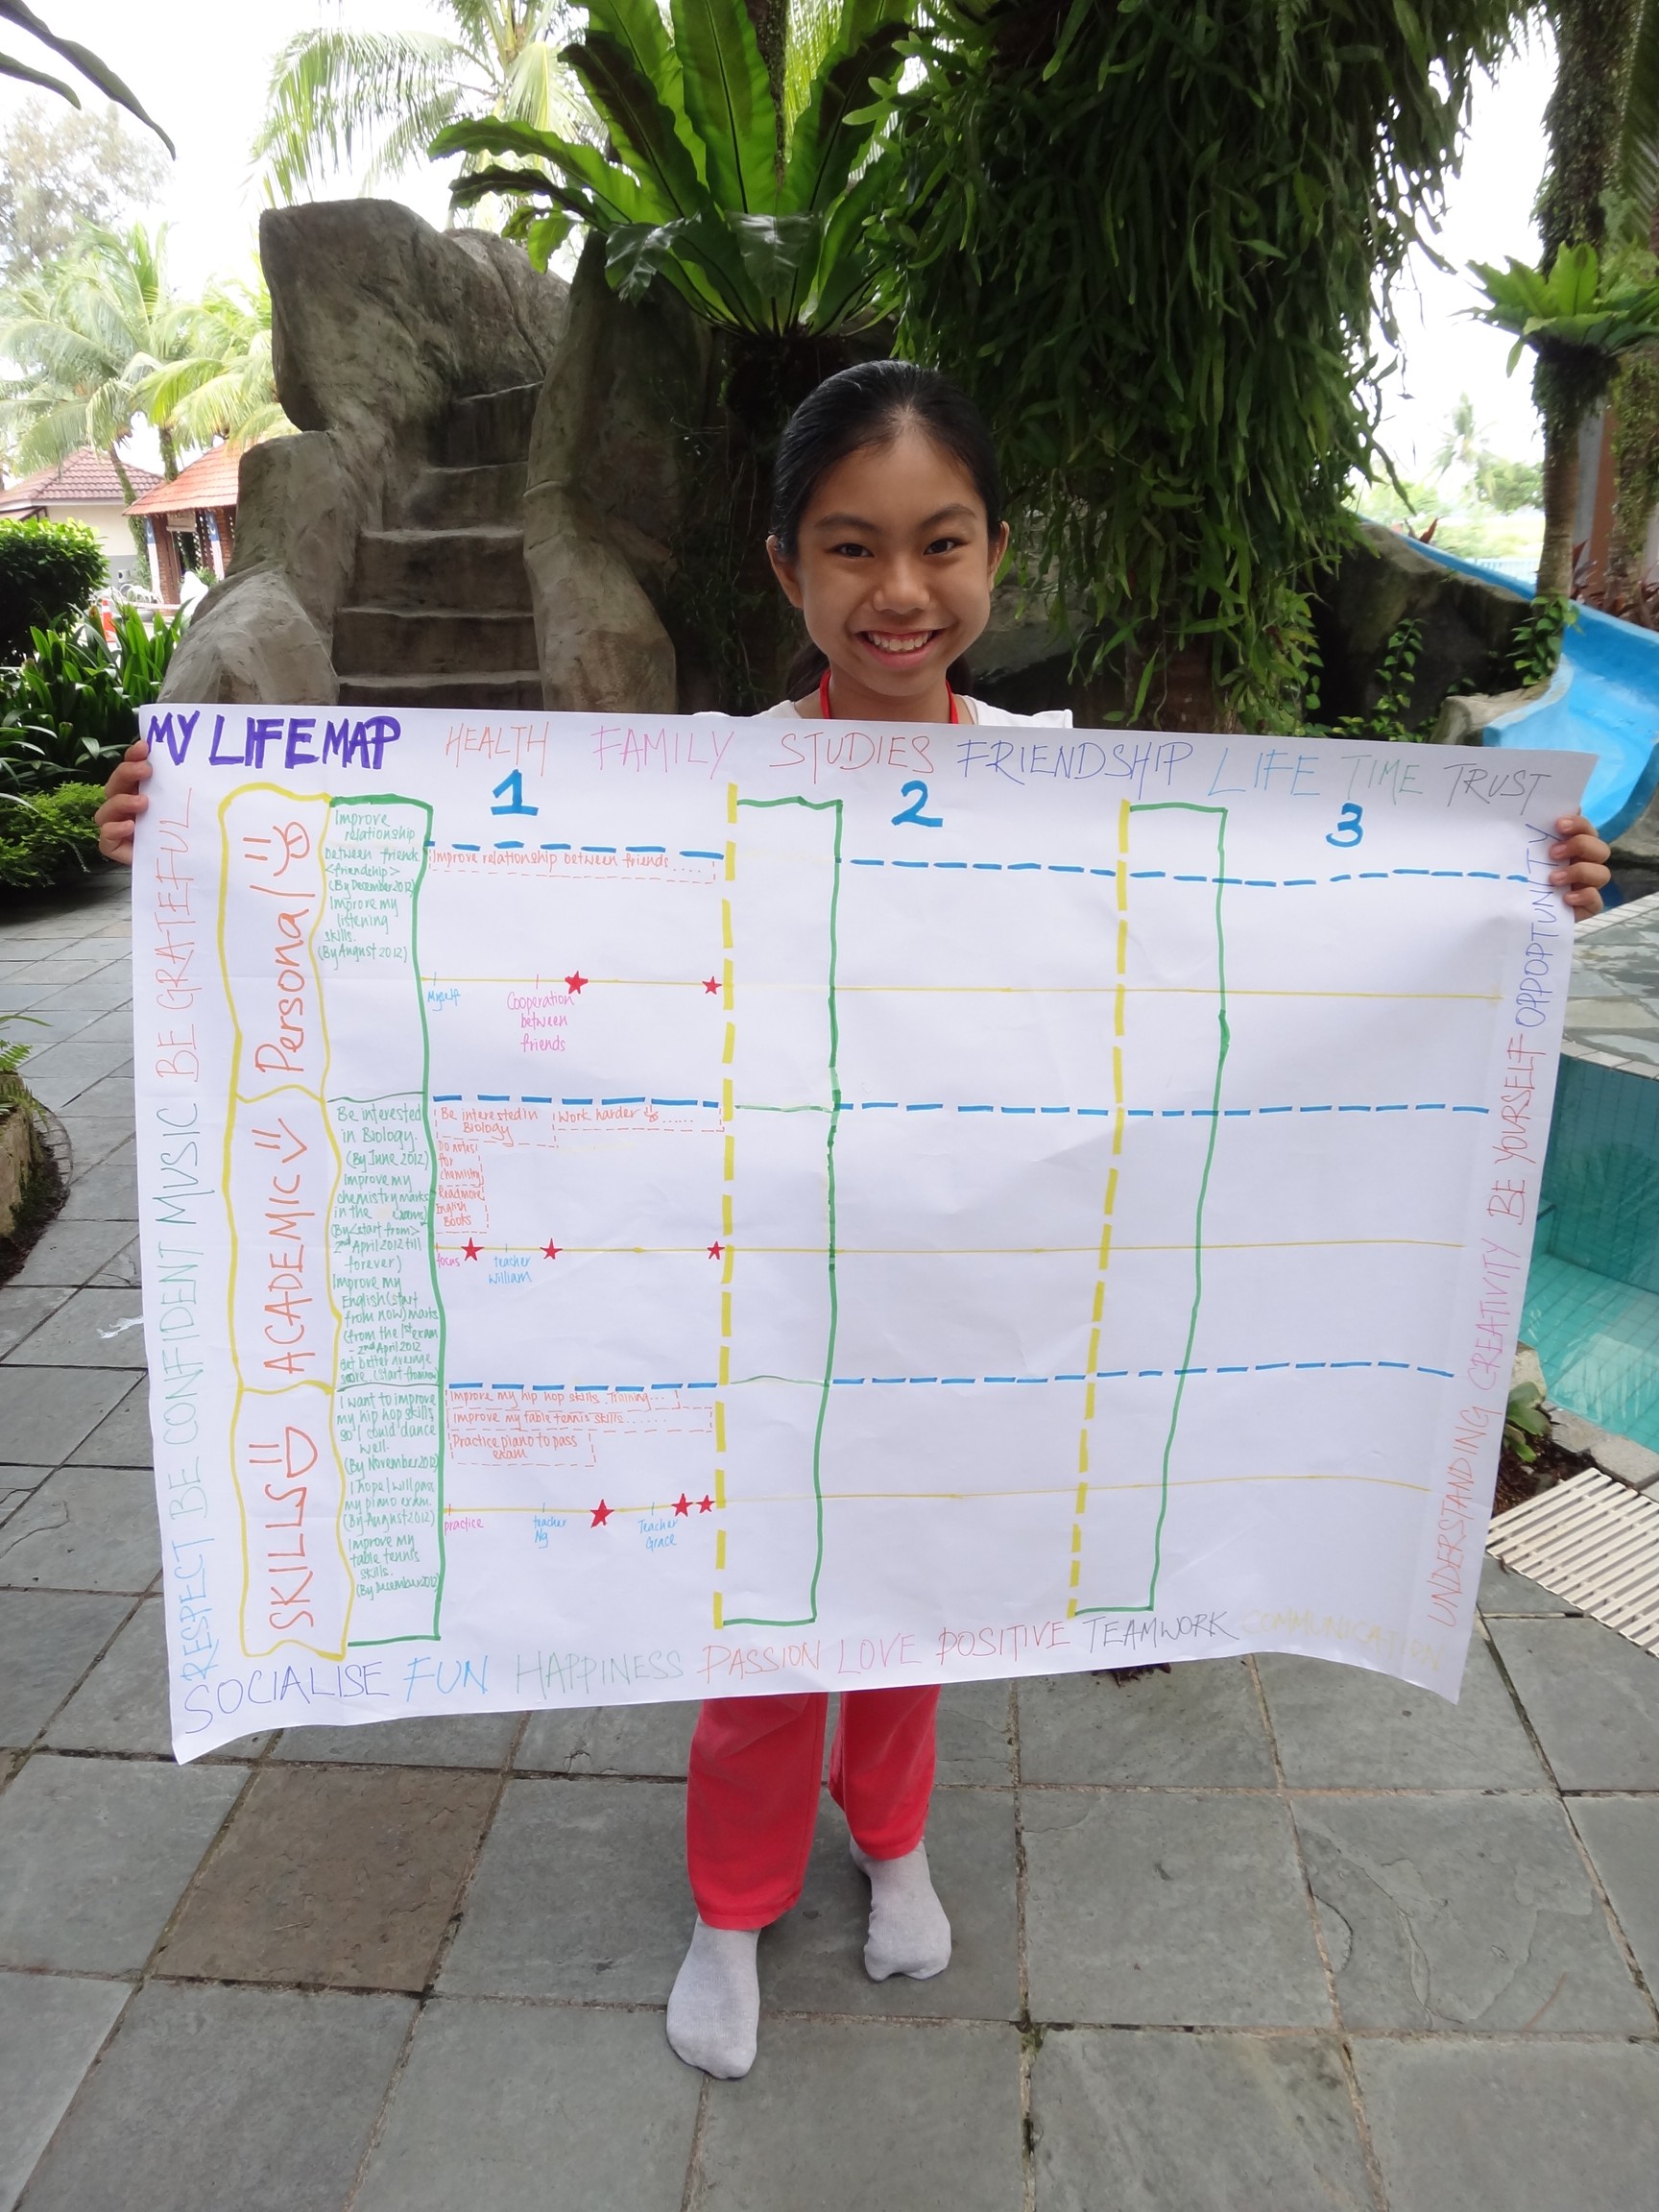 MY LIFE MAP
HEALTH FAMILY STUDIES FRIENDSHIP LIFE TIME TRUST
1
2
3
Personal
Improve
relationship
between friends
<friendship>
(By December 2012)
Improve my
listening
skills.
(By August 2012)
Improve relationship between friends.....
Myself
Cooperation
between
friends
ACADEMIC
Be interested
in Biology.
(By June 2012)
Improve my
chemistry marks
in the exams
(By <start from>
2nd April 2012 till
forever)
Improve my
English (start
from now) marks
(from the 1st exam
- 2nd April 2012
Get better average
score. (start from now)
Be interested in
Biology
Work harder ......
Do notes
for
chemistry
Read more
English
Books
focus
teacher
William
SKILLS
I want to improve
my hip hop skills
so I could dance
well.
(By November 2012)
I hope I will pass
my piano exam.
(By August 2012)
Improve my
table tennis
skills.
(By December 2012)
Improve my hip hop skills. Training...
Improve my table tennis skills.......
Practice piano to pass
exam
practice
teacher
Ng
Teacher
Grace
RESPECT BE CONFIDENT MUSIC BE GRATEFUL
SOCIALISE FUN HAPPINESS PASSION LOVE POSITIVE TEAMWORK COMMUNICATION
UNDERSTANDING CREATIVITY BE YOURSELF OPPOPTUNITY